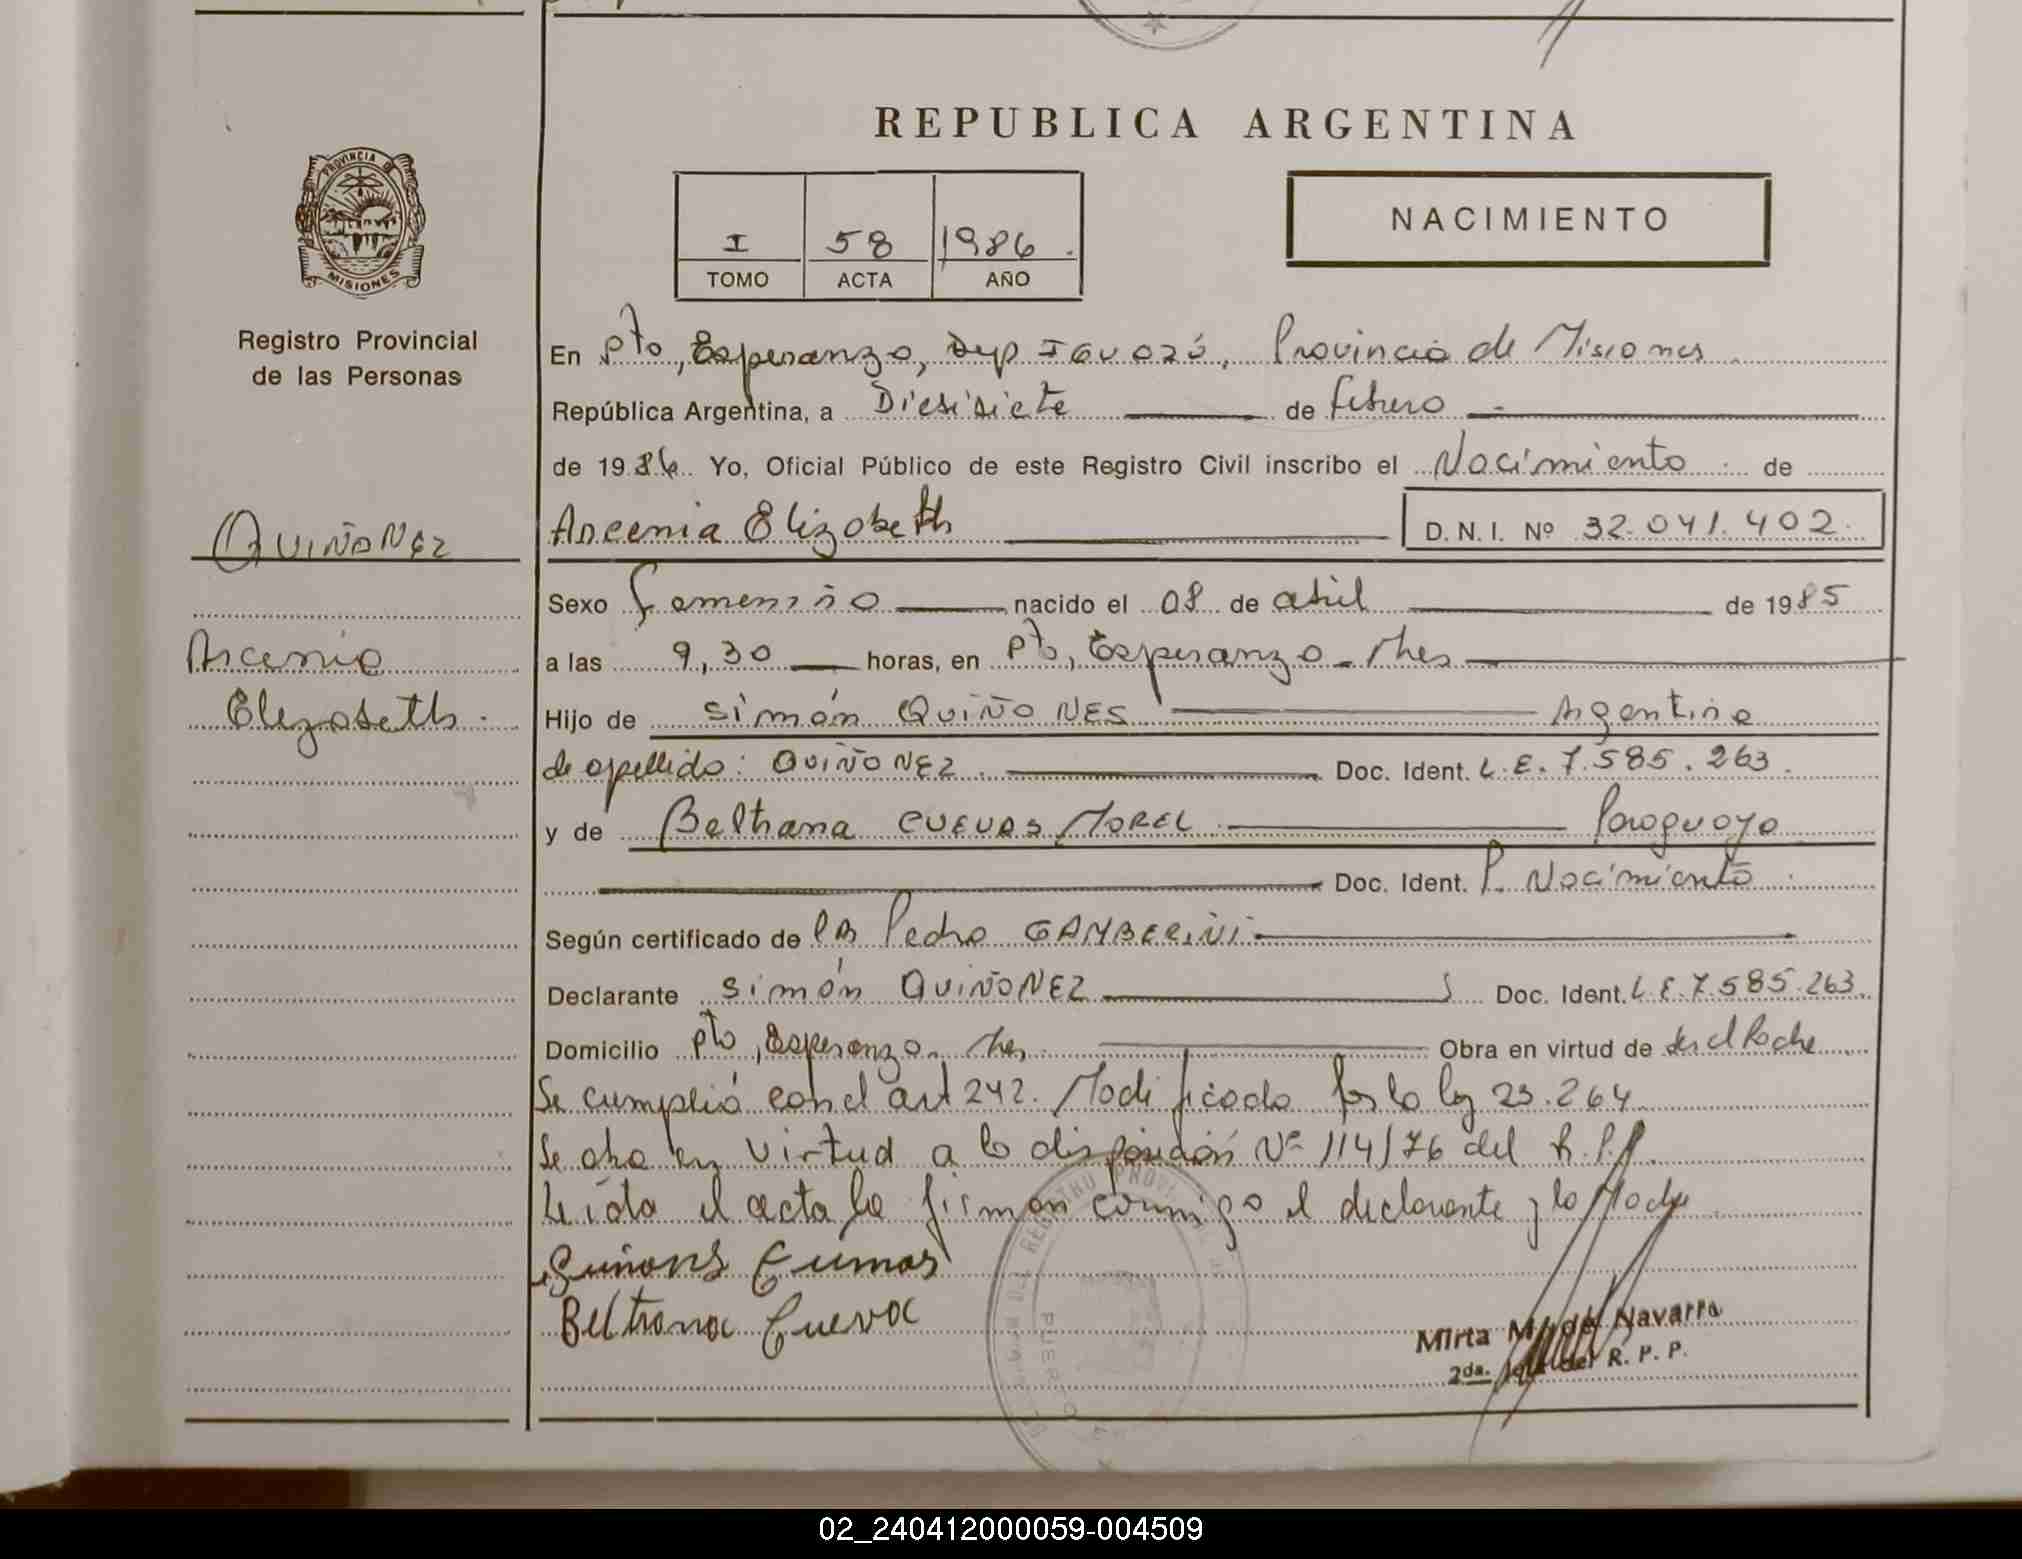 REPUBLICA ARGENTINA
PROVINCIA DE
MISIONES
Registro Provincial
de las Personas
I 58 1986.
TOMO ACTA AÑO
NACIMIENTO
En Pto, Esperanza, Dep IGUAZÚ, Provincia de Misiones
República Argentina, a Diesisiete de febrero
de 1986. Yo, Oficial Público de este Registro Civil inscribo el Nacimiento de
QUIÑONEZ
Ascenia Elizabeth D. N. I. Nº 32.041.402.
Sexo femenino nacido el 08 de abril de 1985
Ascenia
a las 9,30 horas, en Pto, Esperanza - Mnes
Elizabeth.
Hijo de Simón QUIÑONES Argentino
de apellido: QUIÑONEZ. Doc. Ident. L.E. 7.585.263.
y de Beltrana CUEVAS MOREL Paraguaya
Doc. Ident. P. Nacimiento
Según certificado de Pedro GAMBERINI
Declarante Simón QUIÑONEZ Doc. Ident. L.E. 7.585.263.
Domicilio Pto, Esperanza - Mnes Obra en virtud de ser el Padre
Se cumplió con el art 242. Modificado por la ley 23.264
Se obra en virtud a la disposición Nº 114/76 del R.P.P.
Leída el acta la firman conmigo el declarante y la Madre
Beltrana Cueva
Mirta M. de Navarro
2da. Jefe del R. P. P.
02_240412000059-004509